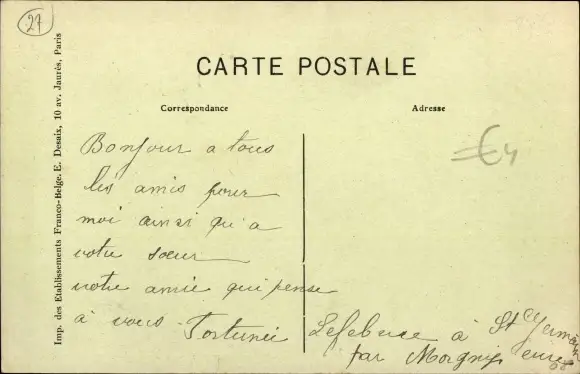 27
CARTE POSTALE
Correspondance
Adresse
Imp. des Etablissements Franco-Belge. E. Desaix, 10 av. Jaurès, Paris
Bonjour a tous
les amis pour
moi ainsi qu'a
votre sœur
votre amie qui pense
à vous Fortunée Lefebvre à St Germain
par Morgny eure
€4